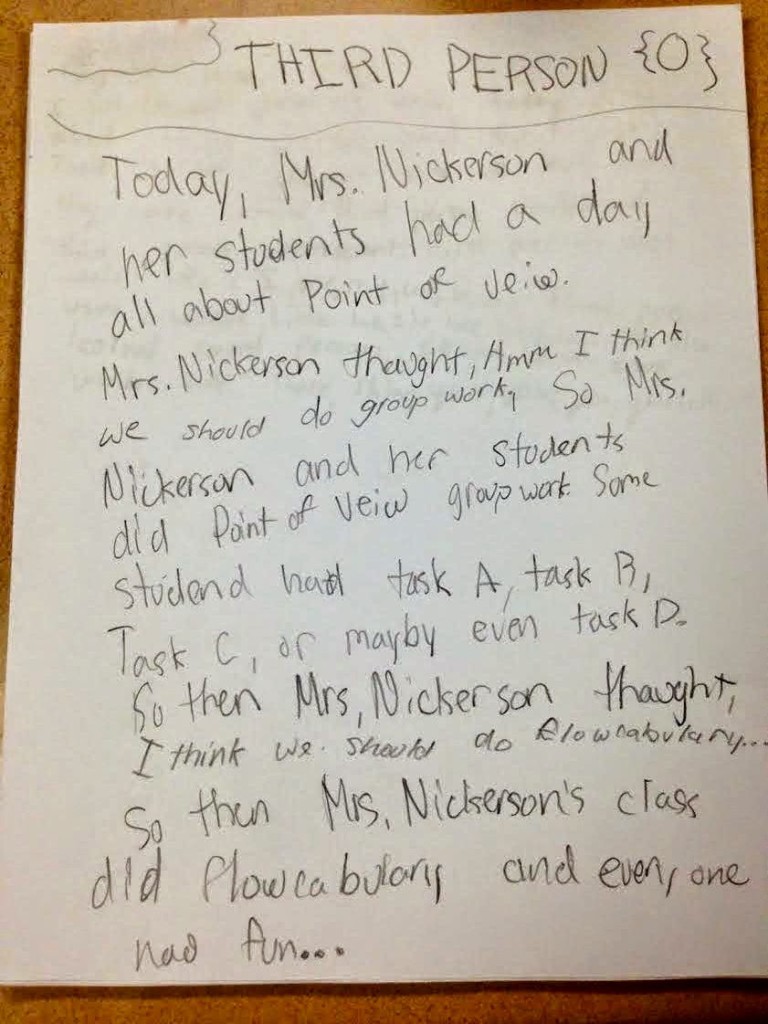 THIRD PERSON {O}
Today, Mrs. Nickerson and
her students had a day
all about Point of veiw.
Mrs. Nickerson thaught, Hmm I think
we should do group work, So Mrs.
Nickerson and her students
did Point of veiw group work. Some
studend had task A, task B,
Task C, or mayby even task D.
So then Mrs, Nickerson thaught,
I think we should do flowcabulary...
So then Mrs, Nickerson's class
did flowcabulary and every one
had fun...